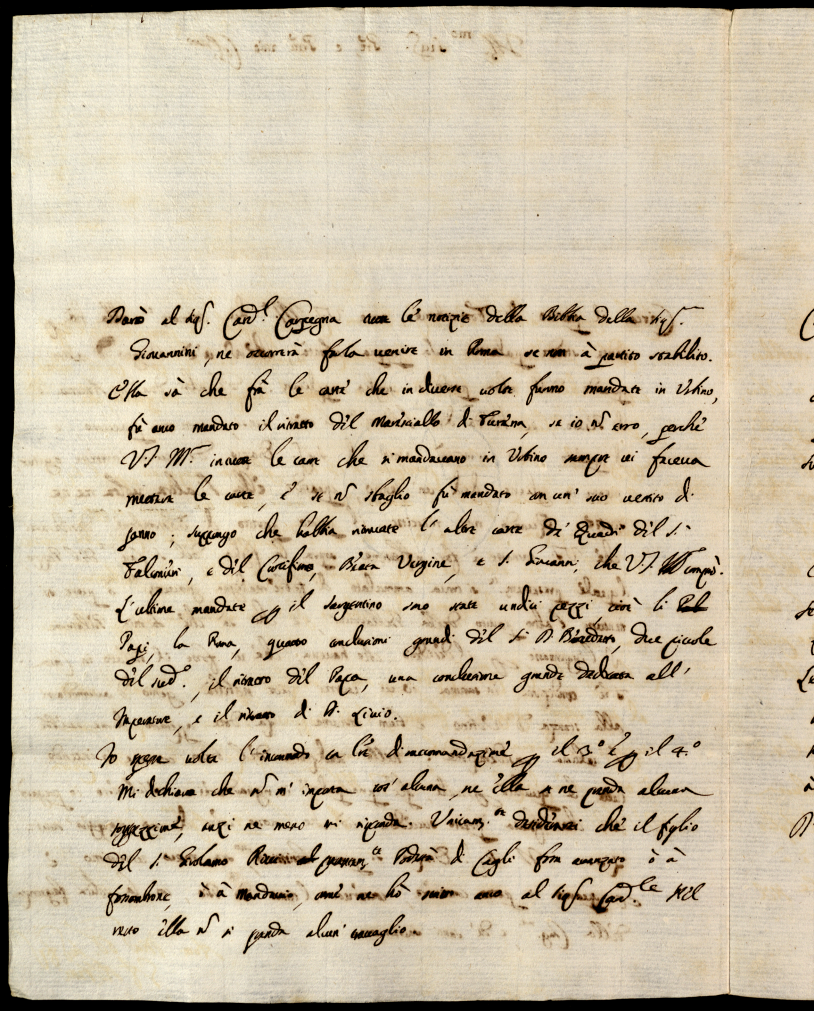 Darò al Sig.r Card.l Carpegna tutte le notizie della Bibbia della Sig.ra
Giovannini, ne occorrerà farla venire in Roma se non à partito stabilito.
Ella sà che frà le carte che in diverse volte furno mandate in Urbino,
fù anco mandato il ritratto del Maresciallo di Turena, se io nō erro, perche
V.S. Ill.ma le carte che si mandavano in Urbino sempre vi faceva
mettere le carte, e se nō sbaglio fù mandato con un' suo vestito di
panno; suppongo che habbia ricevute l'altre carte de' Quadri del S.r
Falconieri, e del Crocifisso, Beata Vergine, e S. Giovanni, che V.S. Ill.ma comprò.
L'ultime mandate il Sargentino sono state undici pezzi, cioè li
Papi, la Roma, quattro conclusioni grandi del S.r D. Benedetto, due piccole
del sud.o, il ritratto del Papa, una conclusione grande dedicata all'
Imperatore, e il ritratto di D. Livio.
Io volte l'incomodo di raccomandazione il 3.o e il 4.o
Mi dichiaro che nō m' importa cos' alcuna, ne ella si ne prenda alcuna
ne meno mi risponda. Unicam.te desiderarei che il figlio
del S.r Girolamo Podestà di Cagli fosse avanzato ò à
fossombrone, ò à Mondavio, come ne hò scritto anco al Sig.r Card.le Del
resto ella nō si prenda alcun' travaglio